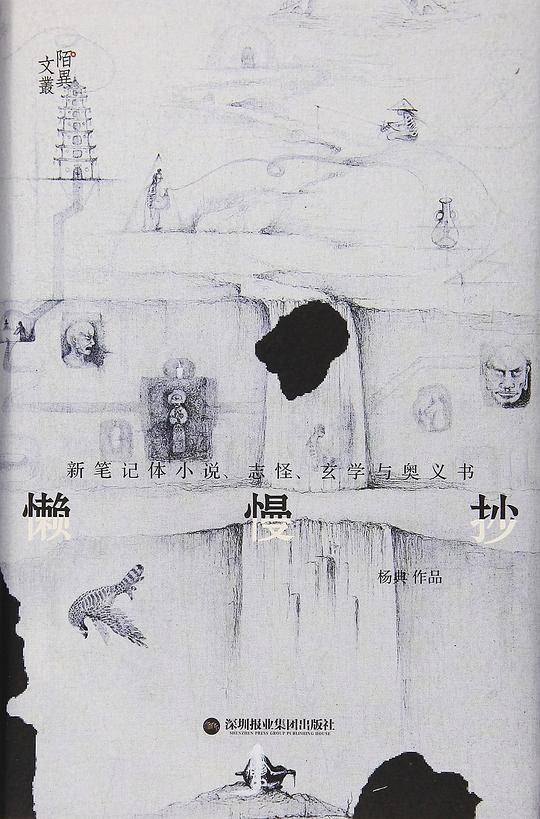 陌異
文叢
新笔记体小说、志怪、玄学与奥义书
懒慢抄
杨典 作品
深圳报业集团出版社
SHENZHEN PRESS GROUP PUBLISHING HOUSE